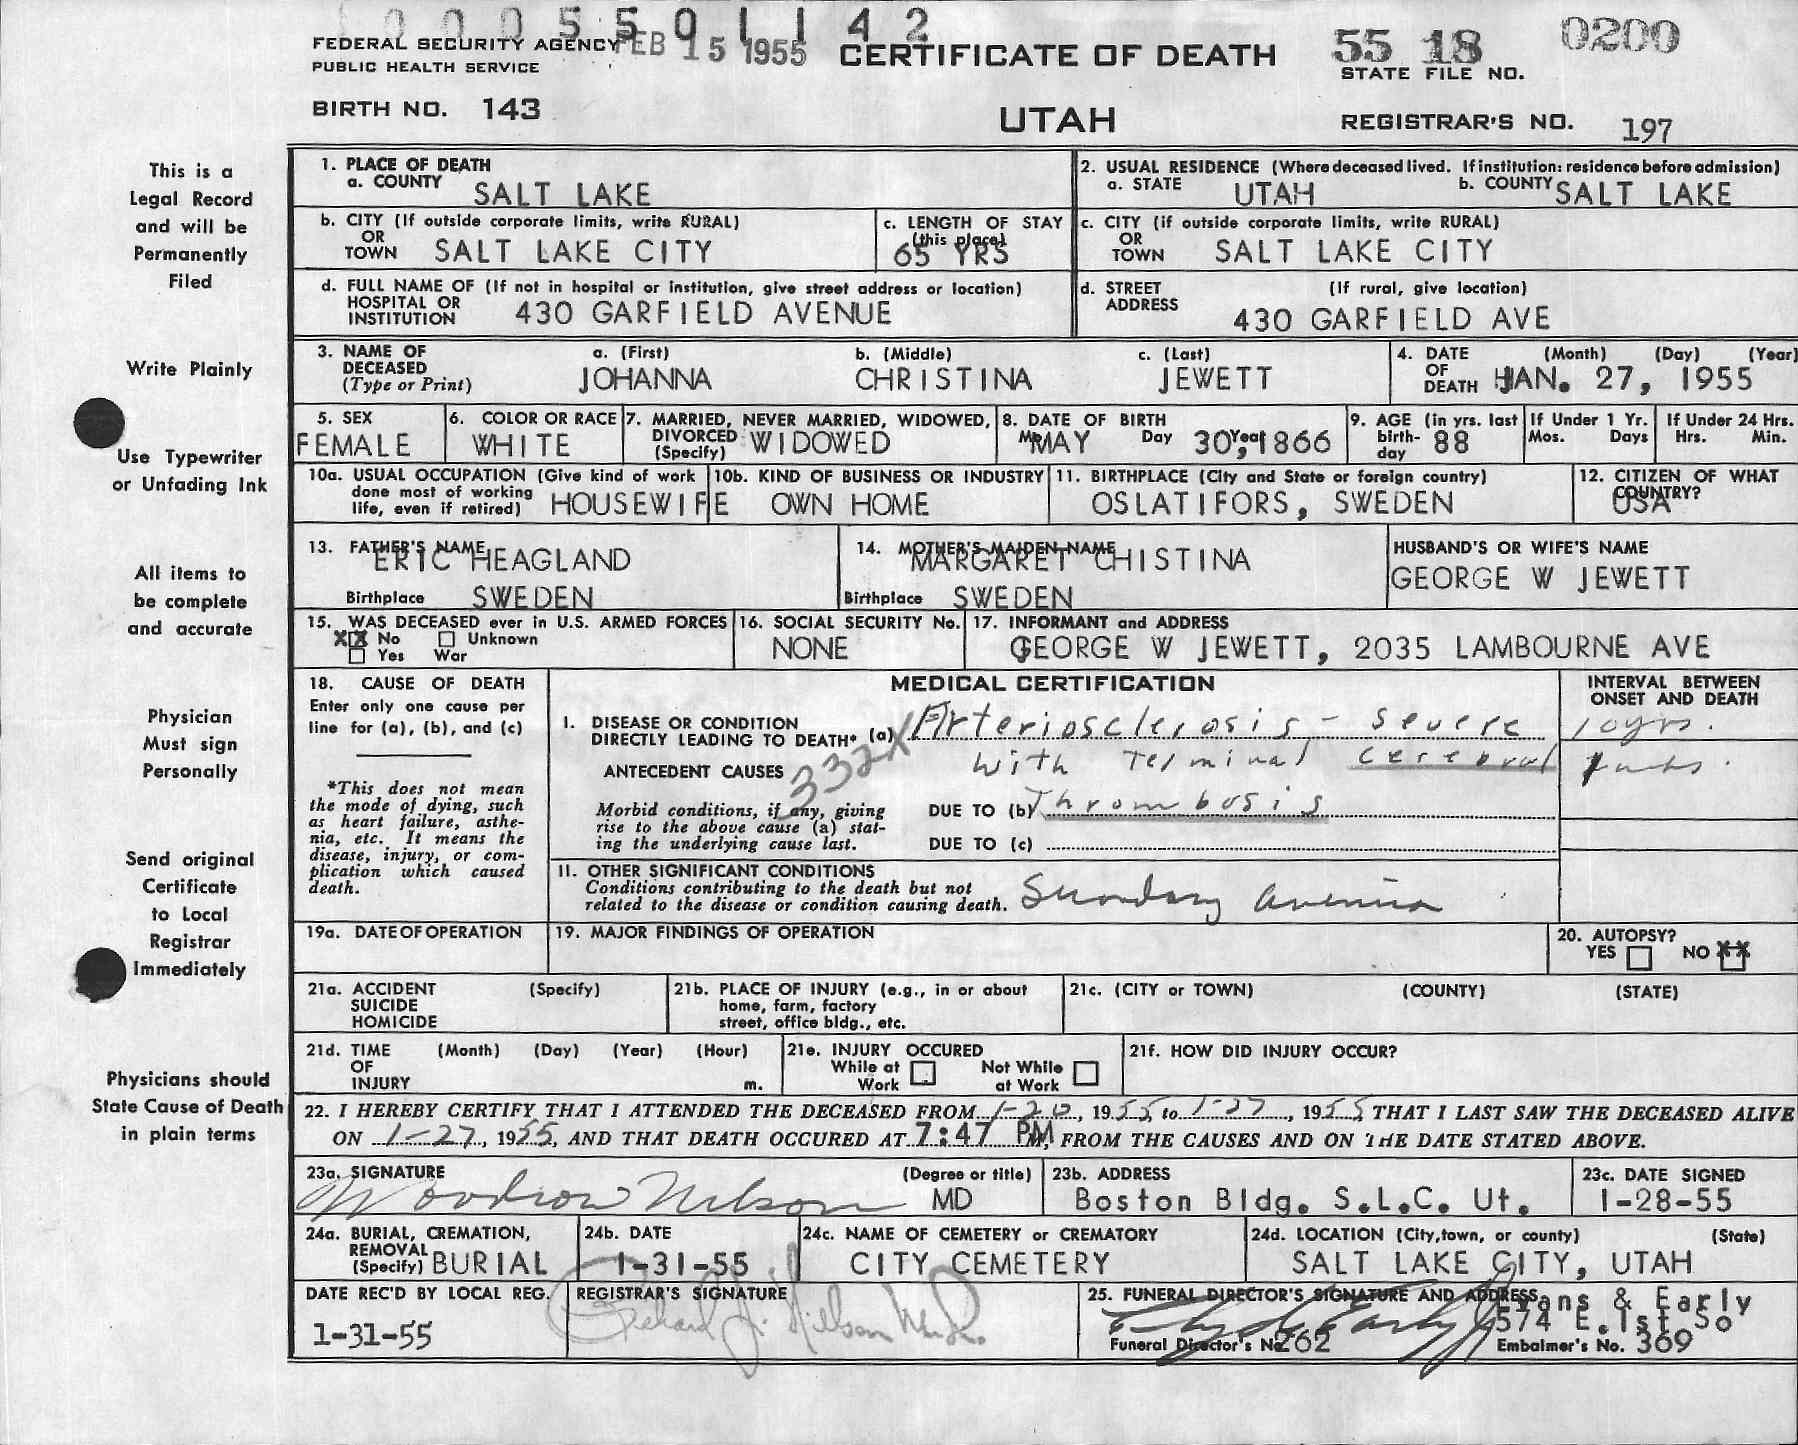 10005501142
FEDERAL SECURITY AGENCY FEB 15 1955 CERTIFICATE OF DEATH 55 18 0200
PUBLIC HEALTH SERVICE STATE FILE NO.
BIRTH NO. 143 UTAH REGISTRAR'S NO. 197
This is a
Legal Record
and will be
Permanently
Filed
Write Plainly
Use Typewriter
or Unfading Ink
All items to
be complete
and accurate
Physician
Must sign
Personally
Send original
Certificate
to Local
Registrar
Immediately
Physicians should
State Cause of Death
in plain terms
1. PLACE OF DEATH
a. COUNTY SALT LAKE
2. USUAL RESIDENCE (Where deceased lived. If institution: residence before admission)
a. STATE UTAH b. COUNTY SALT LAKE
b. CITY (If outside corporate limits, write RURAL)
OR
TOWN SALT LAKE CITY
c. LENGTH OF STAY
(this place)
65 YRS
c. CITY (if outside corporate limits, write RURAL)
OR
TOWN SALT LAKE CITY
d. FULL NAME OF (If not in hospital or institution, give street address or location)
HOSPITAL OR
INSTITUTION 430 GARFIELD AVENUE
d. STREET (If rural, give location)
ADDRESS
430 GARFIELD AVE
3. NAME OF a. (First) b. (Middle) c. (Last)
DECEASED
(Type or Print) JOHANNA CHRISTINA JEWETT
4. DATE (Month) (Day) (Year)
OF
DEATH JAN. 27, 1955
5. SEX
FEMALE
6. COLOR OR RACE
WHITE
7. MARRIED, NEVER MARRIED, WIDOWED,
DIVORCED WIDOWED
(Specify)
8. DATE OF BIRTH
Mo. MAY Day 30, Year 1866
9. AGE (in yrs. last
birth- 88
day
If Under 1 Yr.
Mos. Days
If Under 24 Hrs.
Hrs. Min.
10a. USUAL OCCUPATION (Give kind of work
done most of working
life, even if retired) HOUSEWIFE
10b. KIND OF BUSINESS OR INDUSTRY
OWN HOME
11. BIRTHPLACE (City and State or foreign country)
OSLATIFORS, SWEDEN
12. CITIZEN OF WHAT
COUNTRY?
USA
13. FATHER'S NAME
ERIC HEAGLAND
Birthplace SWEDEN
14. MOTHER'S MAIDEN NAME
MARGARET CHISTINA
Birthplace SWEDEN
HUSBAND'S OR WIFE'S NAME
GEORGE W JEWETT
15. WAS DECEASED ever in U.S. ARMED FORCES
XX No Unknown
Yes War
16. SOCIAL SECURITY No.
NONE
17. INFORMANT and ADDRESS
GEORGE W JEWETT, 2035 LAMBOURNE AVE
18. CAUSE OF DEATH
Enter only one cause per
line for (a), (b), and (c)
*This does not mean
the mode of dying, such
as heart failure, asthe-
nia, etc. It means the
disease, injury, or com-
plication which caused
death.
MEDICAL CERTIFICATION
INTERVAL BETWEEN
ONSET AND DEATH
I. DISEASE OR CONDITION
DIRECTLY LEADING TO DEATH* (a) Arteriosclerosis - severe 10 yrs.
332X
ANTECEDENT CAUSES with Terminal cerebral
Morbid conditions, if any, giving
rise to the above cause (a) stat-
ing the underlying cause last.
DUE TO (b) Thrombosis
DUE TO (c)
II. OTHER SIGNIFICANT CONDITIONS
Conditions contributing to the death but not
related to the disease or condition causing death. Secondary
19a. DATE OF OPERATION
19. MAJOR FINDINGS OF OPERATION
20. AUTOPSY?
YES NO XX
21a. ACCIDENT (Specify)
SUICIDE
HOMICIDE
21b. PLACE OF INJURY (e.g., in or about
home, farm, factory
street, office bldg., etc.
21c. (CITY or TOWN) (COUNTY) (STATE)
21d. TIME (Month) (Day) (Year) (Hour)
OF
INJURY m.
21e. INJURY OCCURED
While at Not While
Work at Work
21f. HOW DID INJURY OCCUR?
22. I HEREBY CERTIFY THAT I ATTENDED THE DECEASED FROM 1-20, 1955 to 1-27, 1955, THAT I LAST SAW THE DECEASED ALIVE
ON 1-27, 1955, AND THAT DEATH OCCURED AT 7:47 PM, FROM THE CAUSES AND ON THE DATE STATED ABOVE.
23a. SIGNATURE (Degree or title)
Woodrow Nelson MD
23b. ADDRESS
Boston Bldg. S.L.C. Ut.
23c. DATE SIGNED
1-28-55
24a. BURIAL, CREMATION,
REMOVAL
(Specify) BURIAL
24b. DATE
1-31-55
24c. NAME OF CEMETERY or CREMATORY
CITY CEMETERY
24d. LOCATION (City, town, or county) (State)
SALT LAKE CITY, UTAH
DATE REC'D BY LOCAL REG.
1-31-55
REGISTRAR'S SIGNATURE
Richard J. Nelson
25. FUNERAL DIRECTOR'S SIGNATURE AND ADDRESS
Evans & Early
574 E.1st So
Funeral Director's No 262
Embalmer's No. 369